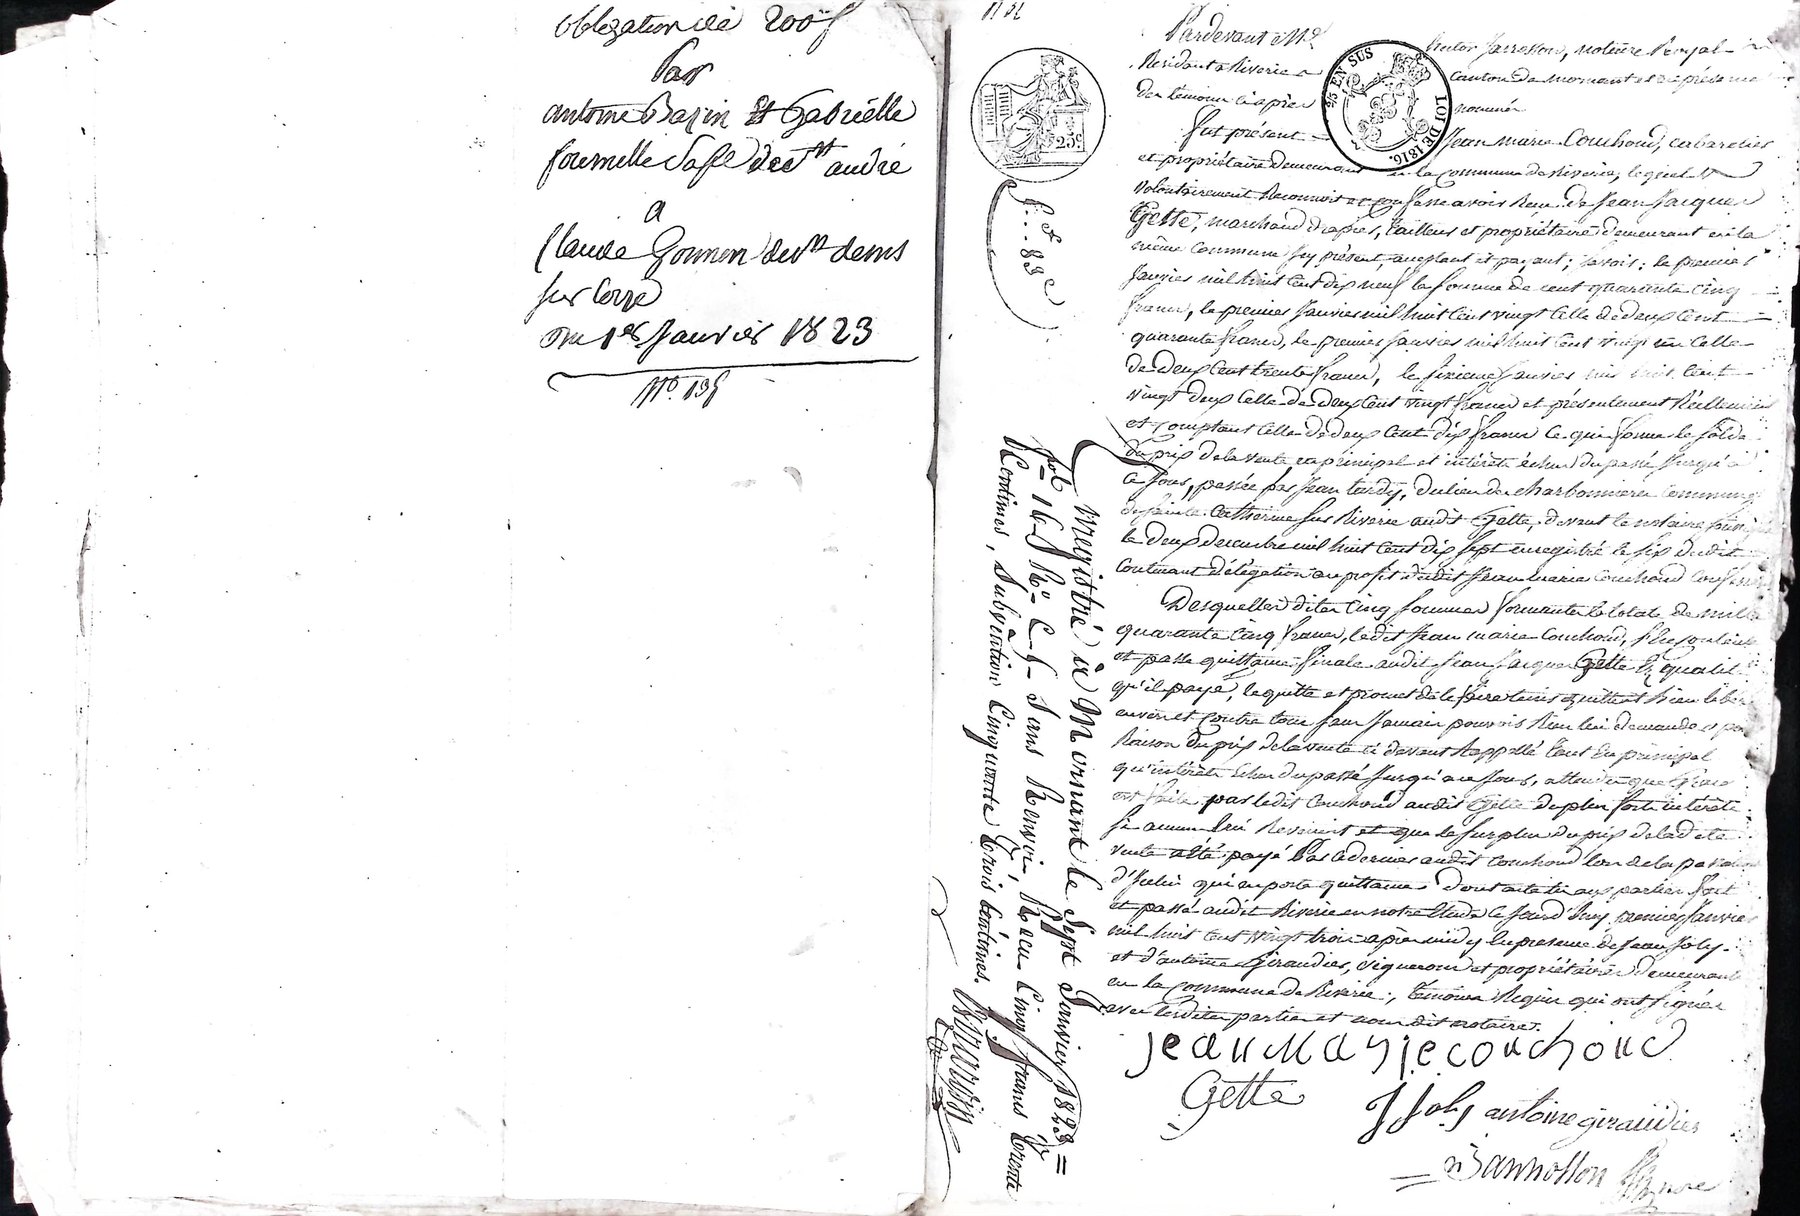 obligation de 200 f
Par
antoine Bazin Et Gabrielle
fournelle Sa fe de St andré
A
Claude Gounon de St denis
sur Coize
Du 1er Janvier 1823
No. 195
Pardevant Me hector Jannosson, notaire Royal
Résidant a Riverie canton de mornant et en présence
des témoins ci après nommés
fut présent Jean marie Couchoud, cabaretier
et propriétaire demeurant en la commune de Riverie, lequel
volontairement Reconnoit et confesse avoir Reçu de Jean Jacques
Gette, marchand drapier, tailleur et propriétaire demeurant en la
même commune ici présent, acceptant et payant; savoir: le premier
Janvier mil huit cent dix neuf la somme de cent quarante cinq
francs, le premier Janvier mil huit cent vingt celle de deux cent
quarante francs, le premier Janvier mil huit cent vingt un celle
de deux cent trente francs, le sixieme Janvier mil huit cent
vingt deux celle de deux cent vingt francs et présentement Réellement
et comptant celle de deux cent dix francs ce qui forme le solde
du prix de la vente en principal et intérêts échus du passé Jusqu'à
ce Jour, passée par Jean tardy, du lieu de charbonnieres commune
de sainte Catherine sur Riverie audit Gette, devant le notaire
le deux decembre mil huit cent dix sept enregistré le six dudit
contenant délégation au profit dudit Jean marie Couchoud
Desquelles dites cinq sommes formantes le total de mille
quarante cinq francs, ledit Jean marie Couchoud,
et passe quittance finale audit Jean Jacques Gette
qu'il paye, le quitte et promet de le faire tenir quitte et bien libéré
envers et contre tous sans Jamais pouvoir Rien lui demander
Raison du prix de la vente ci devant Rappellé tant en principal
qu'intérêts échus du passé Jusqu'à ce Jour, attendu que
est faite par ledit Couchoud audit Gette de plus forts intérêts,
si aucun lui Revenoit et que le surplus du prix de ladite
vente a été payé Par ce dernier audit Couchoud lors de la passation
d'icelui qui en porte quittance. Dont acte
et passé audit Riverie en notre étude ce Jourd'huy premier Janvier
mil huit cent vingt trois après midy En presence de Jean Joly
et d'antoine Giraudier, vignerons et propriétaires demeurants
en la commune de Riverie, témoins Requis qui ont signés
avec lesdites parties et nous dit notaire.
Jean Marie couchoud
Gette
J Joly antoine giraudier
Jannosson
25c
2/5 EN SUS
LOI DE 1816.
83 c
Enregistré à Mornant le Sept Janvier 1823 =
fol. 16 Ro C. 5 Sans Renvoi, Reçu Cinq francs Trente
Centimes, Subvention Cinquante Trois Centimes.